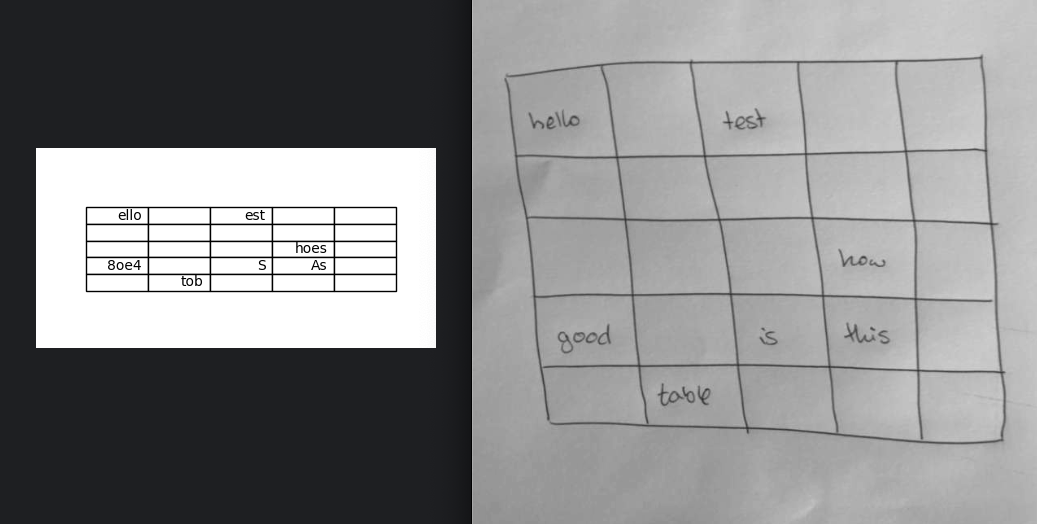 ello est
hoes
8oe4 S As
tob
hello test
how
good is this
table